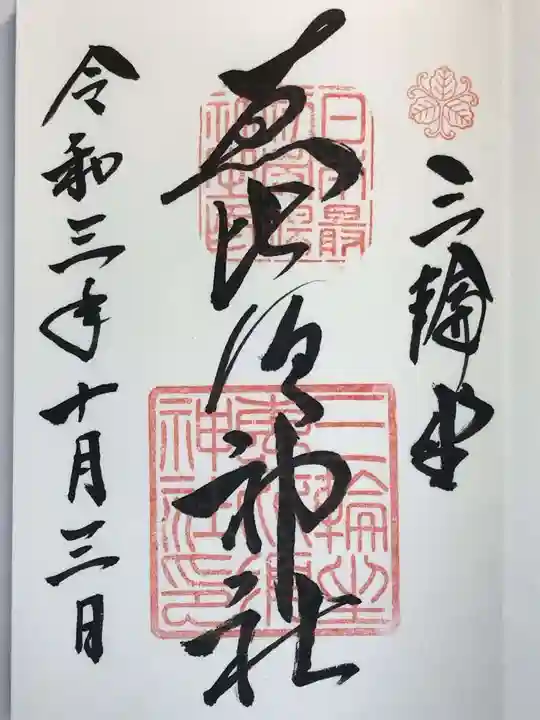 三輪坐
恵比須神社
令和三年十月三日
日本最
三輪坐
恵比須
神社印